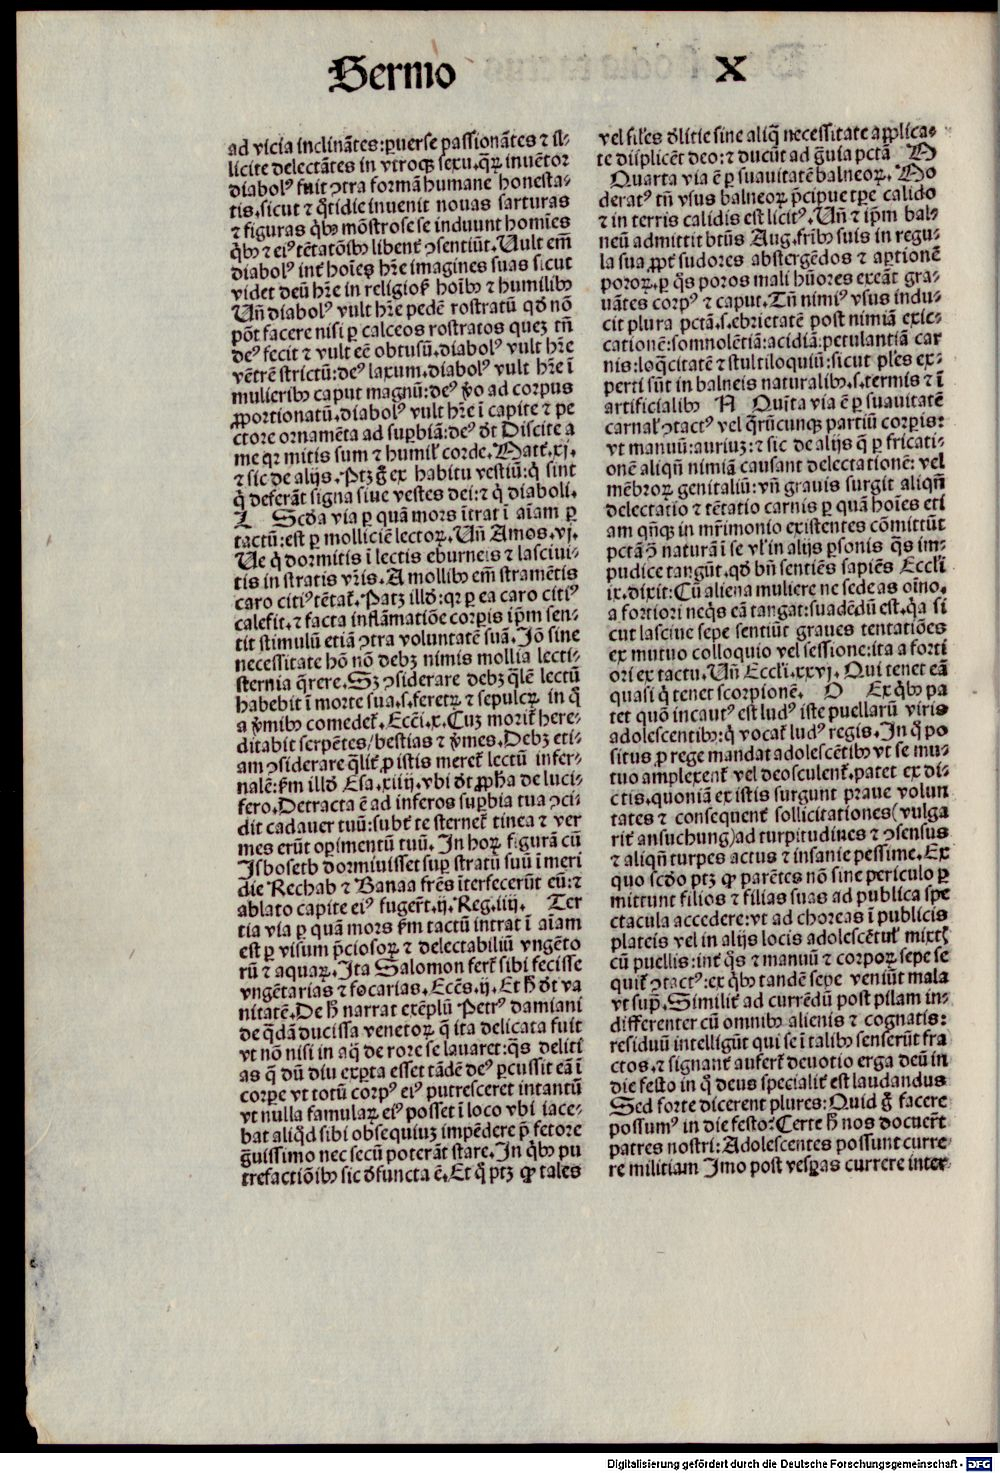 Sermo X
ad vicia inclinãtes:ꝑuerse passionãtes ⁊ il-
licite delectãtes in vtroqꝫ sexu.qꝛ inuẽtor
diabolꝰ fuit ↄtra formã humane honesta-
tis.sicut ⁊ q̃tidie inuenit nouas sarturas
⁊ figuras q̃bꝰ mõstrose se induunt homĩes
q̃bꝰ ⁊ eiꝰ tẽtatõibꝰ libent̃ ↄsentiũt.Uult em̃
diabolꝰ int̃ hoĩes hr̃e imagines suas sicut
videt deũ hr̃e in religios̃ hoĩbꝰ ⁊ humilibꝰ
Un̄ diabolꝰ vult hr̃e pedẽ rostratũ qđ nõ
põt facere nisi ꝑ calceos rostratos quez tñ
deꝰ fecit ⁊ vult eẽ obtusũ.diabolꝰ vult hr̃e
vẽtrẽ strictũ:deꝰ laxum.diabolꝰ vult hr̃e ĩ
mulieribꝰ caput magnũ:deꝰ ṽo ad corpus
ꝓportionatũ.diabolꝰ vult hr̃e ĩ capite ⁊ pe
ctore ornamẽta ad suꝑbiã:deꝰ đt Discite a
me qꝛ mitis sum ⁊ humil̃ corde.Matt̃.xj.
⁊ sic de alijs.Ptꝫ g̃ ex habitu vestiũ:q̃ sint
q̃ deferãt signa siue vestes dei:⁊ q̃ diaboli.
L Scđa via ꝑ quã mors ĩtrat ĩ aĩam ꝑ
tactũ:est ꝑ molliciẽ lectoꝝ.Un̄ Amos.vj.
Ue q̃ dormitis ĩ lectis eburneis ⁊ lasciui-
tis in stratis vr̃is.A mollibꝰ em̃ stramẽtis
caro citiꝰ tẽtat̃.Patꝫ illđ:qꝛ ꝑ ea caro citiꝰ
calefit.⁊ facta inflãmatiõe corꝑis ip̃m sen-
tit stimulũ etiã ↄtra voluntatẽ suã.Iõ sine
necessitate hõ nõ debꝫ nimis mollia lecti-
sternia q̃rere.Sꝫ ↄsiderare debꝫ q̃lẽ lectũ
habebit ĩ morte sua.s.feretꝝ ⁊ sepulcꝝ in q̃
a ṽmibꝰ comedet̃.Ecc̃i.x.Cuz morit̃ here-
ditabit serpẽtes/bestias ⁊ ṽmes.Debꝫ eti-
am ↄsiderare q̃lit̃ ꝓ istis meret̃ lectũ infer-
nalẽ:ẜm illđ Esa.xiiij.vbi đt ꝓpħa de luci-
fero.Detracta ẽ ad inferos suꝑbia tua ↄci-
dit cadauer tuũ:subt̃ te sternet̃ tinea ⁊ ver
mes erũt oꝑimentũ tuũ.In hoꝝ figurã cũ
Isboseth dormiuisset suꝑ stratũ suũ ĩ meri
die Rechab ⁊ Banaa fr̃es ĩterfecerũt eũ:⁊
ablato capite eiꝰ fuger̃t.ij.Reg.iiij. Ter
tia via ꝑ quã mors ẜm tactũ intrat ĩ aĩam
est ꝑ visum p̃ciosoꝝ ⁊ delectabiliũ vngẽto
rũ ⁊ aquaꝝ.Ita Salomon fert̃ sibi fecisse
vngẽtarias ⁊ focarias.Ecc̃s.ij.Et ħ đt va
nitatẽ.De ħ narrat exẽplũ Petrꝰ damiani
de q̃dã ducissa venetoꝝ q̃ ita delicata fuit
vt nõ nisi in aq̃ de rore se lauaret:q̃s deliti
as q̃ dũ diu exꝑta esset tãdẽ deꝰ ꝑcussit eã ĩ
corꝑe vt totũ corpꝰ eiꝰ putresceret intantũ
vt nulla famulaꝝ eiꝰ posset ĩ loco vbi iace-
bat aliq̃d sibi obsequiuꝫ impẽdere p̃ fetore
g̃uissimo nec secũ poterãt stare.In q̃bꝰ pu
trefactiõibꝰ sic đfuncta ẽ.Et q̃ ptꝫ ꝙ tales
vel sil̃es đlitie sine aliq̃ necessitate applica-
te diiplicẽt deo:⁊ ducũt ad g̃uia pctã M
Quarta via ẽ ꝑ suauitatẽ balneoꝝ.Mo
deratꝰ tñ vsus balneoꝝ p̃cipue tꝑe calido
⁊ in terris calidis est licitꝰ.Un̄ ⁊ ip̃m bal-
neũ admittit btũs Aug.fr̃ibꝰ suis in regu-
la sua ꝓpt̃ sudores abstergẽdos ⁊ aꝑtionẽ
poroꝝ.ꝑ q̃s poros mali hũores exeãt gra-
uãtes corpꝰ ⁊ caput.Tñ nimiꝰ vsus indu-
cit plura pctã.s.ebrietatẽ post nimiã exic-
cationẽ:somnolẽtiã:acidiã:petulantiã car
nis:loq̃citatẽ ⁊ stultiloquiũ:sicut pl̃es ex-
perti sũt in balneis naturalibꝰ.s.termis ⁊ ĩ
artificialibꝰ N Quĩta via ẽ ꝑ suauitatẽ
carnal̃ ↄtactꝰ vel q̃rũcunqꝫ partiũ corꝑis:
vt manuũ:auriuꝫ:⁊ sic de alijs q̃ ꝑ fricati-
onẽ aliqũ nimiã causant delectationẽ: vel
mẽbroꝝ genitaliũ:vñ grauis surgit aliqñ
delectatio ⁊ tẽtatio carnis ꝑ quã hoĩes eti
am qñqꝫ in mr̃imonio existentes cõmittũt
pctã ꝯ̃ naturã ĩ se vl̃ in alijs ꝑsonis q̃s im-
pudice tangũt.qđ bñ sentiẽs sapiẽs Eccl̃i
ix.dixit:Cũ aliena muliere ne sedeas oĩno.
a fortiori neq̃s eã tangat:suadẽdũ est.q̃a si
cut lasciue sepe sentiũt graues tentatiões
ex mutuo colloquio vel sessione:ita a forti
ori ex tactu.Un̄ Eccl̃i.xxvj.Qui tenet eã
quasi q̃ tenet scorpionẽ. O Ex q̃bꝰ pa
tet quõ incautꝰ est ludꝰ iste puellarũ viris
adolescentibꝰ:q̃ vocat̃ ludꝰ regis.In q̃ po
situs ꝓ rege mandat adolescẽtibꝰ vt se mu-
tuo amplexent̃ vel deosculent̃.patet ex di-
ctis.quoniã ex istis surgunt praue volun
tates ⁊ consequent̃ sollicitationes(vulga
rit̃ ansuchung)ad turpitudines ⁊ ↄsensus
⁊ aliqñ turpes actus ⁊ insanie pessime.Ex
quo scđo ptꝫ ꝙ parẽtes nõ sine periculo ꝑ
mittunt filios ⁊ filias suas ad publica spe
ctacula accedere:vt ad choreas ĩ publicis
plateis vel in alijs locis adolescẽtul̃ mixtꝭ
cũ puellis:int̃ q̃s ⁊ manuũ ⁊ corpoꝝ sepe se
quit̃ ↄtactꝰ:ex q̃bꝰ tandẽ sepe veniũt mala
vt supͣ.Similit̃ ad currẽdũ post pilam in-
differenter cũ omnibꝰ alienis ⁊ cognatis:
residuũ intelligũt qui se ĩ talibꝰ senserũt fra
ctos.⁊ signant̃ aufert̃ deuotio erga deũ in
die festo in q̃ deus specialit̃ est laudandus
Sed forte dicerent plures:Quid g̃ facere
possumꝰ in die festo?Certe ħ nos docuer̃t
patres nostri:Adolescentes possunt curre-
re militiam Imo post vesꝑas currere inter-
Digitalisierung gefördert durch die Deutsche Forschungsgemeinschaft - DFG